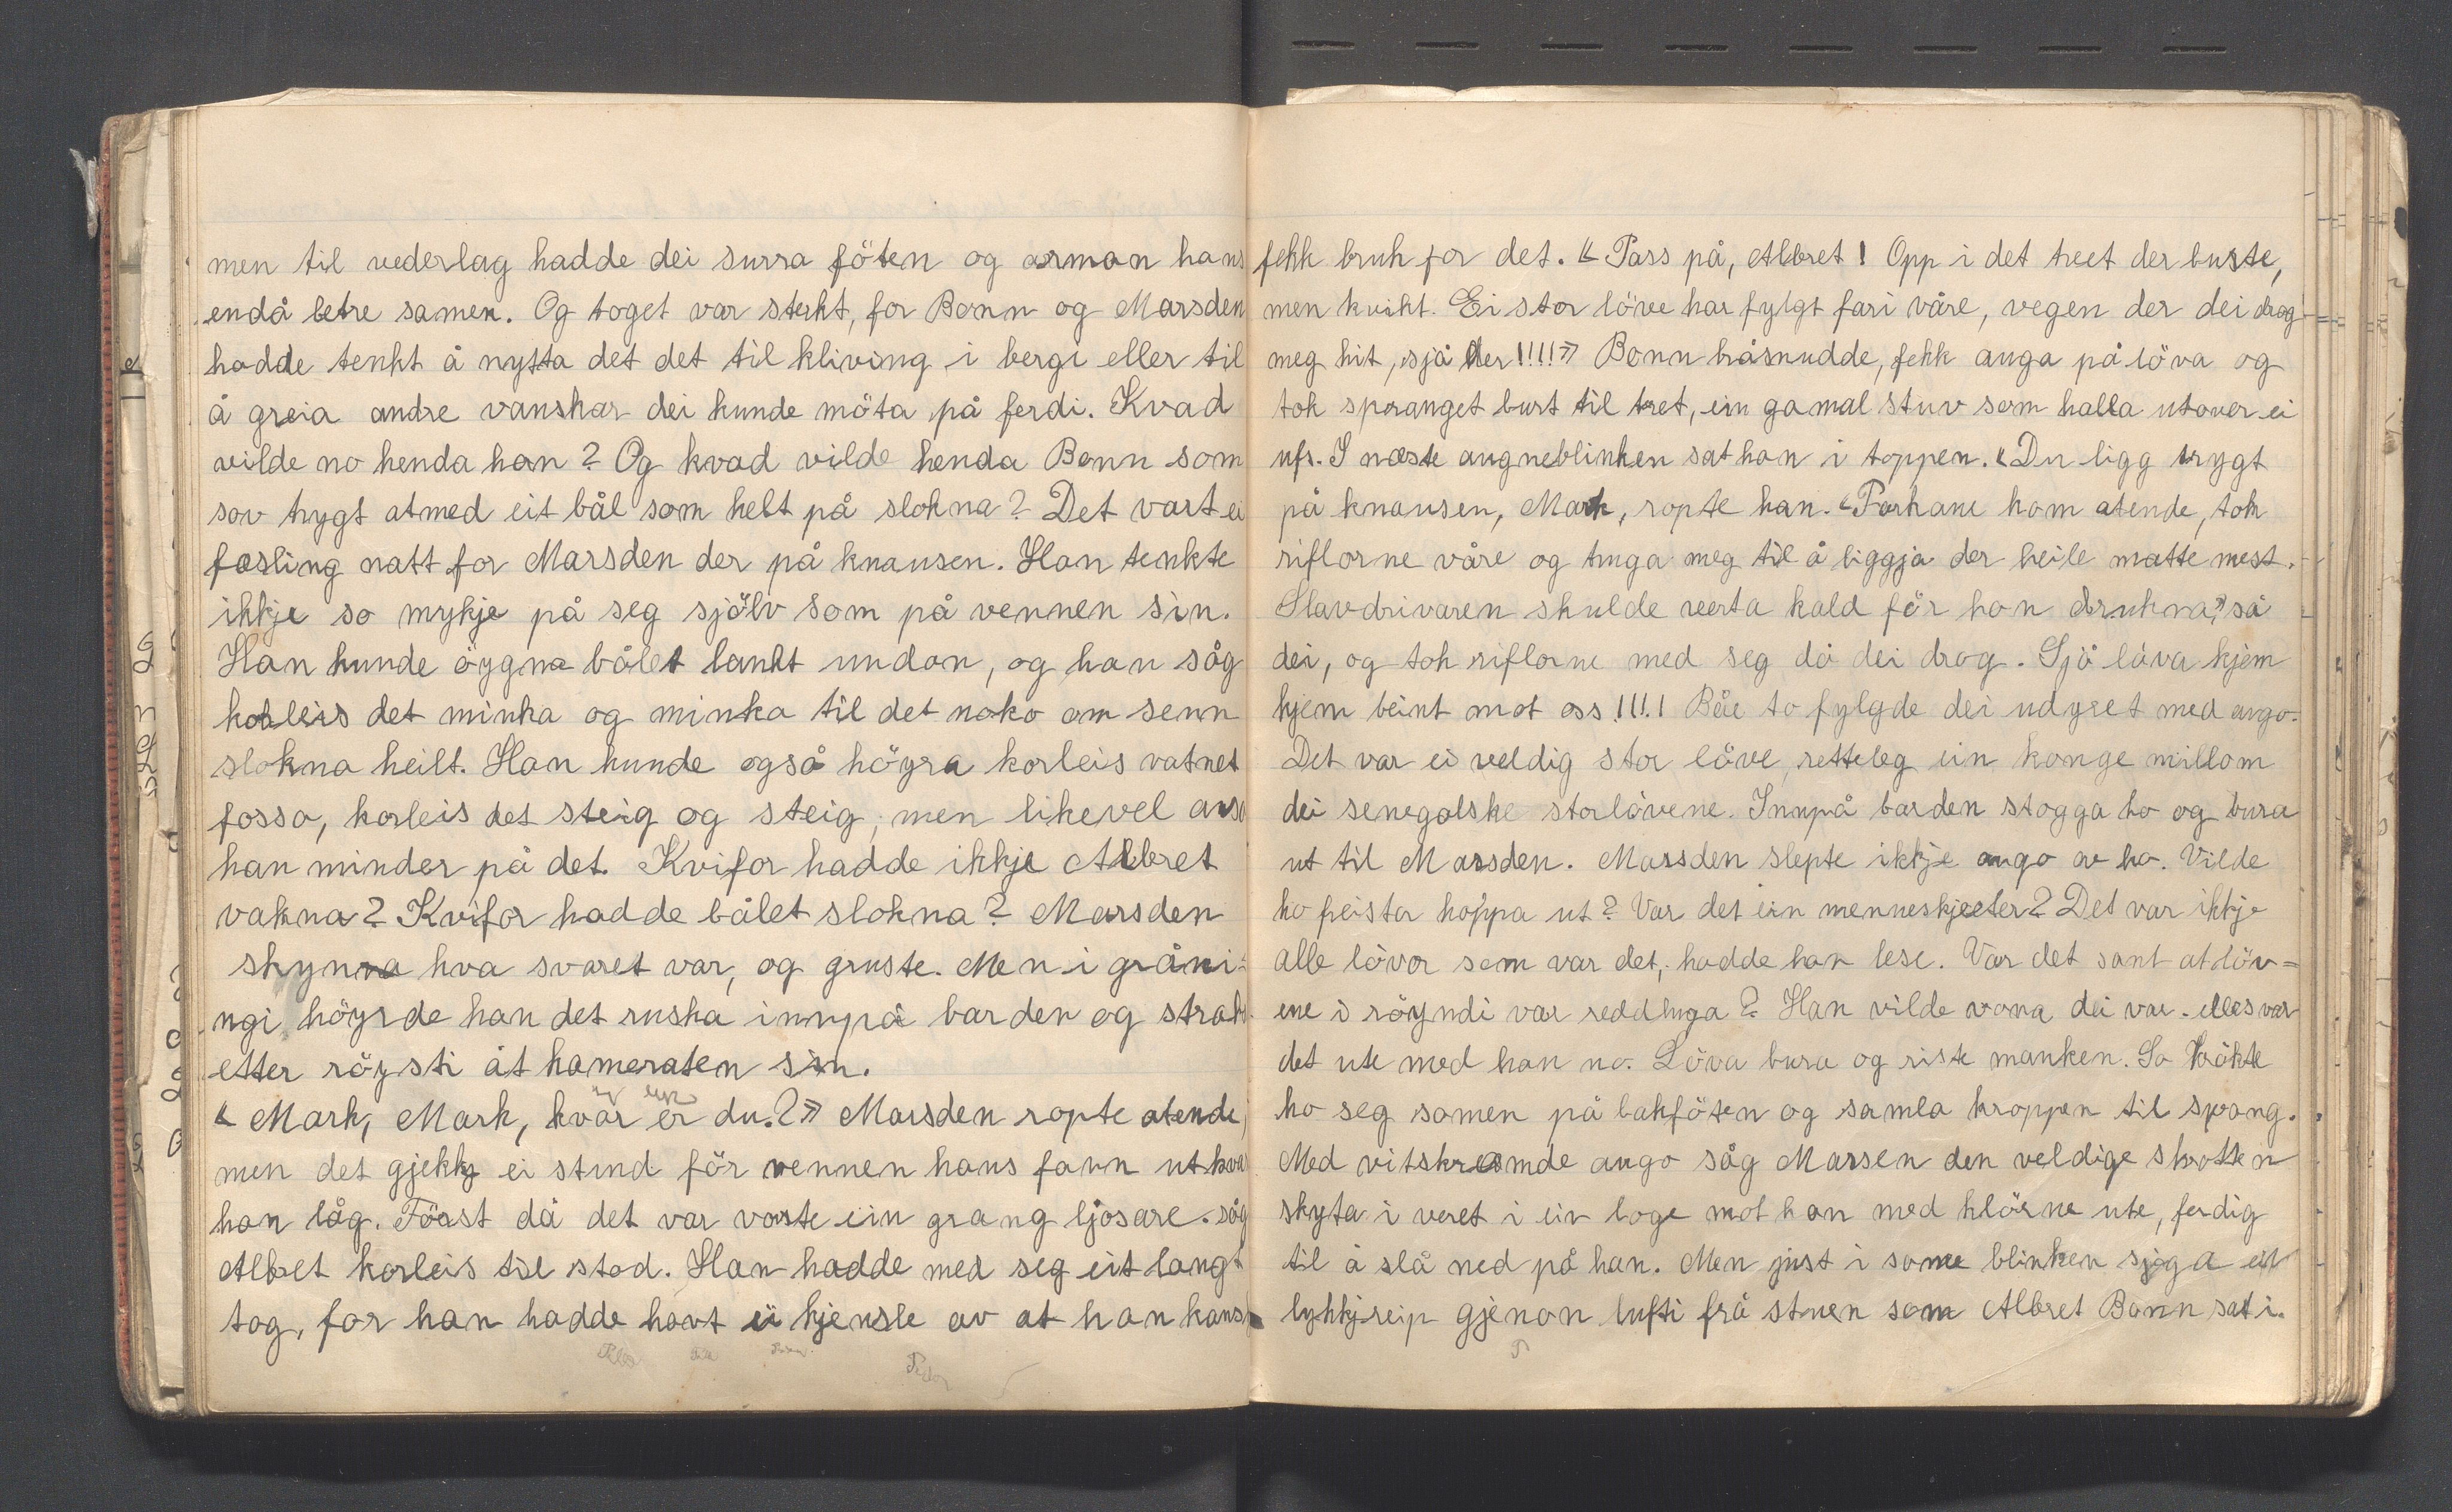 men til vederlag hadde dei surra föten og arman hans
endå betre samen. Og toget var sterkt, for Bonn og Marsden
hadde tenkt å nytta det det til kliving i bergi eller til
å greia andre vanskar dei kunde möta på ferdi. Kvad
vilde no henda han? Og kvad vilde henda Bonn som
sov trygt atmed eit bål som helt på slokna? Det vart ei
fæsling natt for Marsden der på knausen. Han tenkte
ikkje so mykje på seg sjölv som på vennen sin.
Han kunde öygna bålet lankt undan, og han såg
korleis det minka og minka til det noko om senn
slokna heilt. Han kunde også höyra korleis vatnet
fossa, korleis det steig og steig, men likevel ansa
han minder på det. Kvifor hadde ikkje Albret
vakna? Kvifor hadde bålet slokna? Marsden
skynna hva svaret var, og gruste. Men i gråni-
ngi höyrde han det ruska innpå barden og straks
etter röysti åt kameraten sin.
« Mark, Mark, kvar er du?» Marsden ropte atende,
men det gjekk ei stund för vennen hans fann ut kva
han låg. Först då det var vorte ein grang ljosare. såg
Albret korleis til stod. Han hadde med seg eit langt
tog, for han hadde havt ei kjensle av at han kans
fekk bruk for det. « Pass på, Albret! Opp i det treet der burte,
men kvikt. Ei stor löve har fylgt fari våre, vegen der dei drog
meg hit, sjå der!!!!» Bonn båsnudde, fekk auga på löva og
tok spranget burt til tret, ein gamal stuv som halla utover ei
ufs. I næste augneblinken sat han i toppen. « Du ligg trygt
på knausen, Mark, ropte han. « Farkane kom atende, tok
riflorne våre og tunga meg til å liggja der heile natte mest.
Slavdrivaren skulde verta kald för han drukna,» sa
dei, og tok riflorne med seg då dei drog. Sjå löva kjem
kjem beint mot oss!!!! Båe to fylgde dei udyret med augo.
Det var ei veldig stor löve, retteleg ein konge millom
dei senegalske storlövene. Innpå barden stogga ho og bura
ut til Marsden. Marsden slepte ikkje augo av ho. Vilde
ho freista hoppa ut? Var det ein menneskjeeter? Det var ikkje
alle lövor som var det, hadde han lese. Var det sant at löv=
ene i röyndi var reddhuga? Han vilde vona dei var. elles var
det ute med han no. Löva bura og riste manken. So krökte
ho seg samen på bakföten og samla kroppen til sprang.
Med vitskræmde augo såg Marsen den veldige skrotten
skyta i veret i ein boge mot han med klörne ute, ferdig
til å slå ned på han. Men just i same blinken sjoga eit
lykkjreip gjenon lufti frå stuen som Albret Bonn sat i.